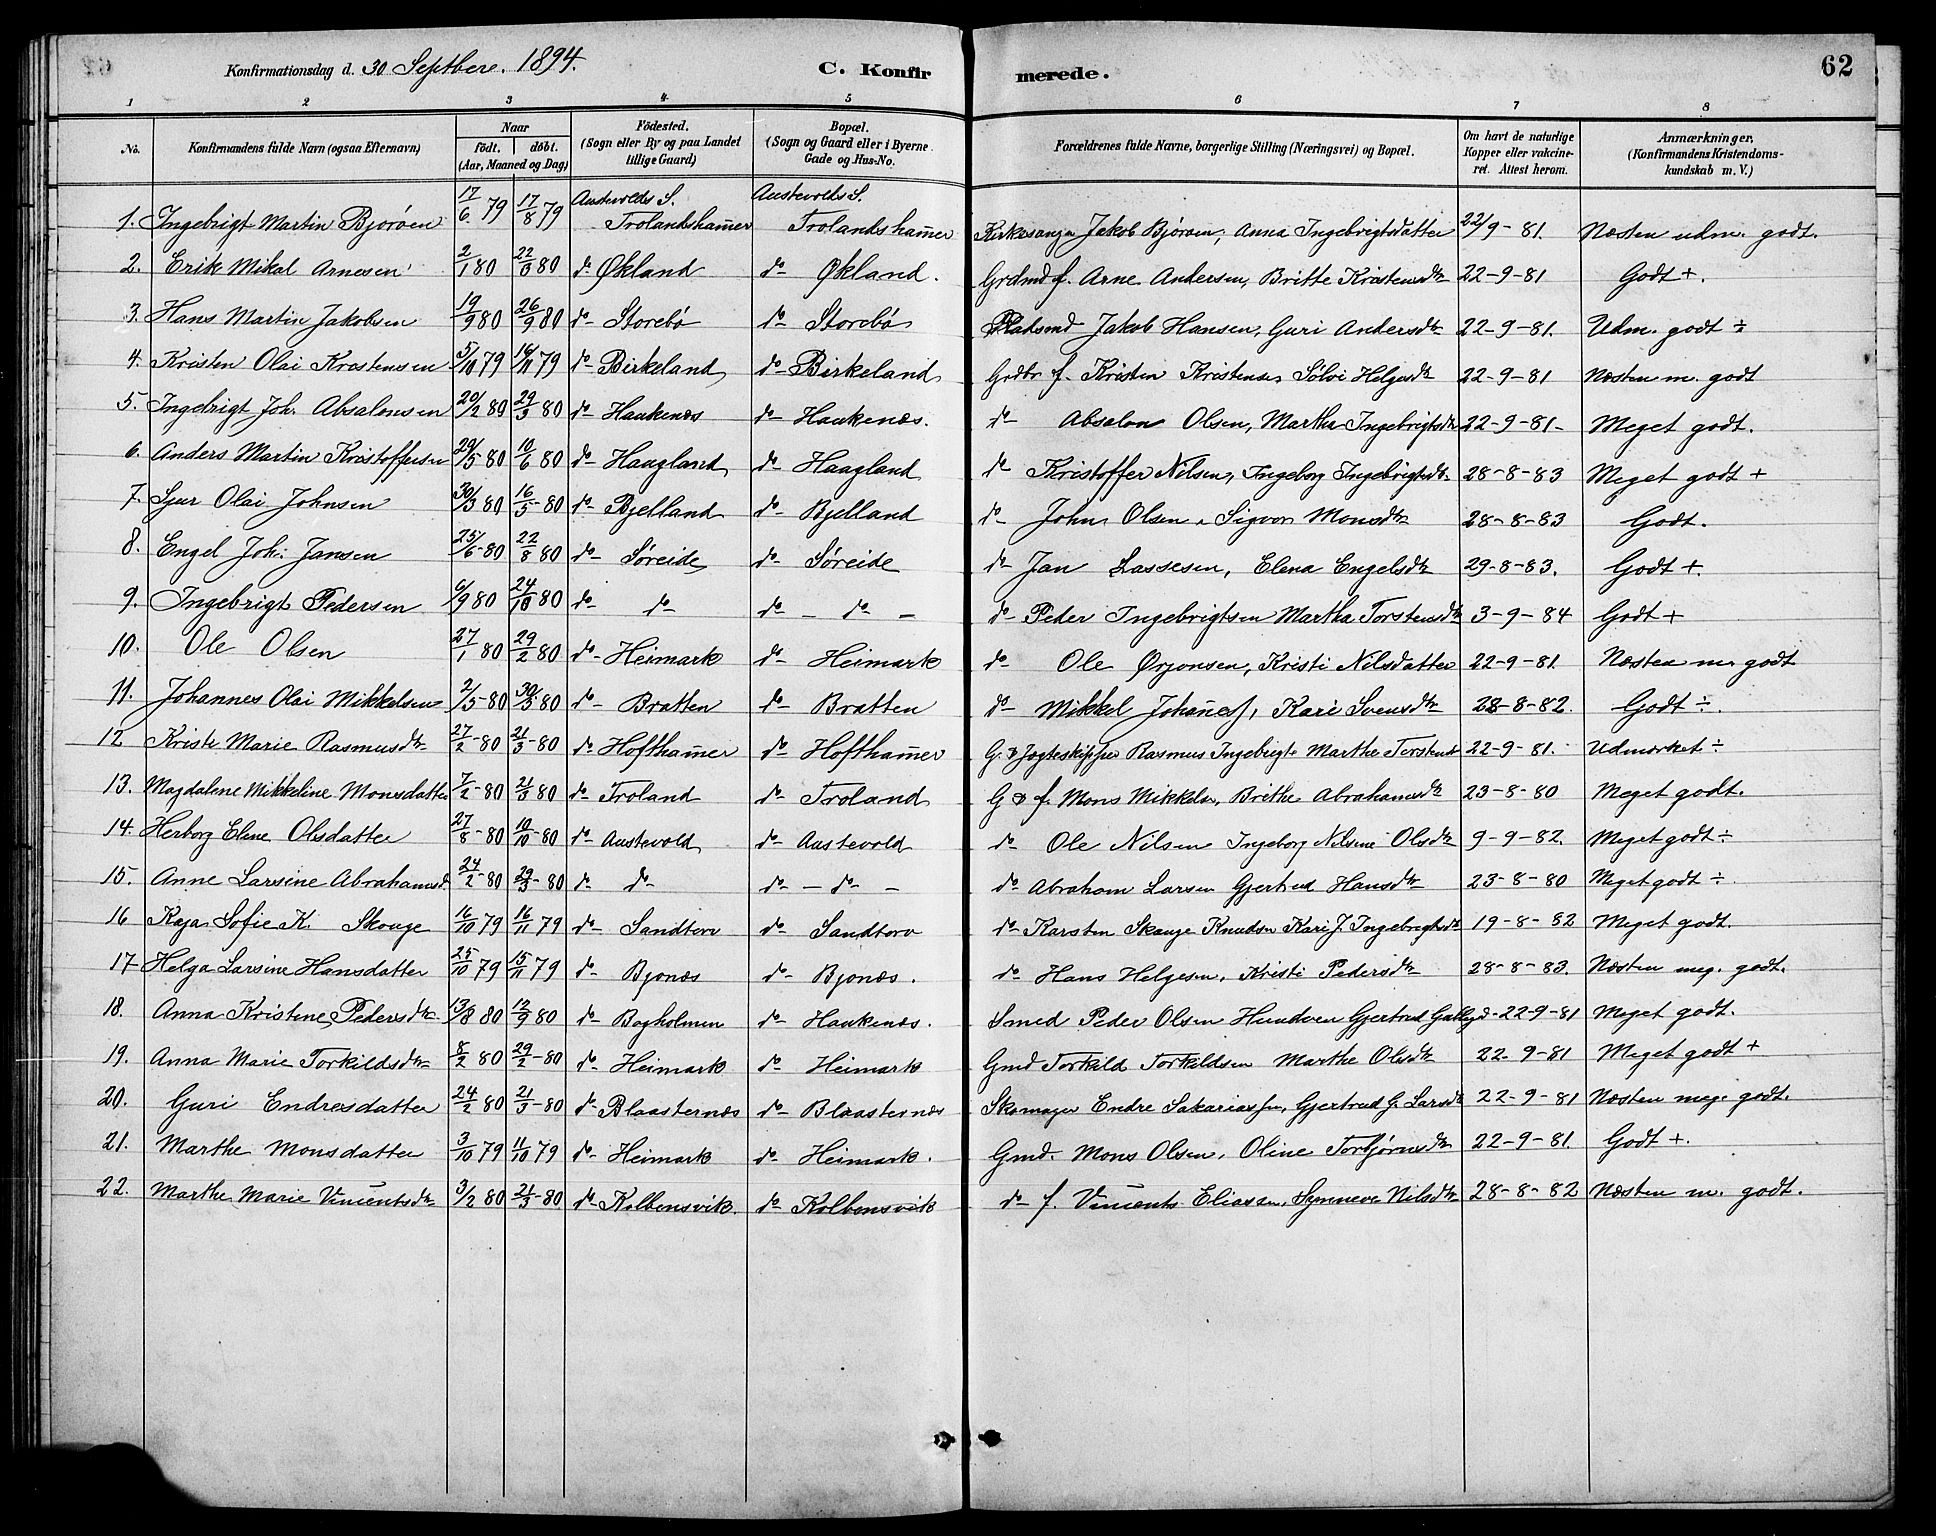 Konfirmationsdag d. 30 Septbere. 1894. C. Konfir merede. 62
1 2 3 4 5 6 7 8
No. Konfirmandens fulde Navn (ogsaa Efternavn) Naar födt. döbt. (Aar, Maaned og Dag) Födested. (Sogn eller By og paa Landet tillige Gaard) Bopæl. (Sogn og Gaard eller i Byerne Gade og Hus-No. Forældrenes fulde Navne, borgerlige Stilling (Næringsvei) og Bopæl. Om havt de naturlige Kopper eller vakcineret. Attest herom. Anmærkninger, (Konfirmandens Kristendomskundskab m. V.)
1. Ingebrigt Martin Bjorøen 17/6 79 17/8 79 Austevolds S. Trolandsham̄er Austevolds S. Trolandsham̄er Kirkesanger Jakob Bjørøen, Anna Ingebrigtsdatter 22/9-81. Næsten udm. godt.
2. Erik Mikal Arnesen 2/1 80 22/3 80 do Økland do Økland. Grdmd f. Arne Andersen, Britte Kristensdtr 22-9-81 Godt +.
3. Hans Martin Jakobsen 19/9 80 26/9 80 do Storebø do Storebø Pladsmd Jakob Hansen, Guri Andersdtr 22-9-81. Udm. godt ÷
4. Kristen Olai Kristensen 5/10 79 16/11 79 do Birkeland do Birkeland Grdbr f. Kristen Kristensen Sølvi Helgesdtr 22-9-81 Næsten m. godt
5. Ingebrigt Joh. Absalonsen 20/2 80 29/3 80 do Haukenæs do Haukenæs. do Absalon Olsen, Martha Ingebrigtsdtr 22-9-81- Meget godt.
6. Anders Martin Kristoffersen 29/5 80 10/6 80 do Haagland do Haagland do Kristoffer Nilsen, Ingeborg Ingebrigtsdtr 28-8-83 Meget godt +
7. Sjur Olai Johnsen 30/3 80 16/5-80 do Bjelland do Bjelland do John Olsen, Sigvor Monsdtr 28-8-83 Godt.
8. Engel Joh. Jansen 25/6-80 22/8 80 do Søreide do Søreide do Jan Lassesen, Elena Engelsdtr 29-8-83. Godt +.
9. Ingebrigt Pedersen 6/9 80 24/10 80 do do do - do - do Peder Ingebrigtsen Martha Torstensdtr 3-9-84 Godt +
10. Ole Olsen 27/1 80 29/2 80 do Heimark do Heimark do Ole Ørjonsen, Kristi Nilsdatter 22-9-81. Næsten m. godt
11. Johannes Olai Mikkelsen 2/5-80 30/5 80 do Bratten do Bratten do Mikkel Johan̄es f, Kari Svensdtr 28-8-82. Godt ÷.
12 Kristi Marie Rasmusdtr 27/2-80 21/3-80 do Hoftham̄er do Hoftham̄er G. & Jægteskipper Rasmus Ingebrigts Marthe Torstensdtr 22-9-81. Udmærket ÷
13. Magdalene Mikkeline Monsdatter 7/2-80 21/3 80 do Troland do Troland G & f. Mons Mikkelsen, Brithe Abrahamsdtr 23-8-80 Meget godt.
14. Herborg Elene Olsdatter 27/8-80 10/10-80 do Austevold do Austevold do Ole Nilsen Ingeborg Nilsine Olsdtr 9-9-82. Meget godt ÷
15. Anne Larsine Abrahamsd. 24/2-80 29/3-80 do do do - do - do Abraham Larsen Gjertrud Hansdtr 23-8-80 Meget godt ÷.
16 Kaja Sofie K. Skouge 16/10 79 16/11 79 do Sandtorv do Sandtorv do Karsten Skauge Knudsen Kari J. Ingebrigtsdtr 19-8-82 Meget godt.
17 Helga Larsine Hansdatter 25/10 79 15/11 79 do Bjonæs do Bjonæs. do Hans Helgesen, Kristi Pedersdtr 28-8-83. Næsten meg. godt.
18. Anna Kristine Pedersdtr 13/8 80 12/9 80 do Bogholmen do Haukenæs. Smed Peder Olsen Hundven Gjertrud 22-9-81 Meget godt.
19. Anna Marie Torkildsdtr 8/2 80 29/2-80 do Heimark do Heimark Gmd Torkild Torkildsen Marthe Olsdtr 22-9-81 Meget godt +
20. Guri Endresdatter 24/2 80 21/3-80 do Blaasternæs do Blaasternæs Skomager Endre Sakariassen, Gjertrud G. Larsdtr 22-9-81 Næsten meg. godt.
21. Marthe Monsdatter 3/10 79 11/10 79 do Heimark do Heimark. Gmd. Mons Olsen, Oline Torbjørnsdtr 22-9-81. Godt +.
22. Marthe Marie Vincentsdtr 3/2 80 21/3-80 do Kolbensvik. do Kolbensvik do f. Vincents Eliassen, Synneve Nilsdtr 28-8-82 Næsten m. godt.